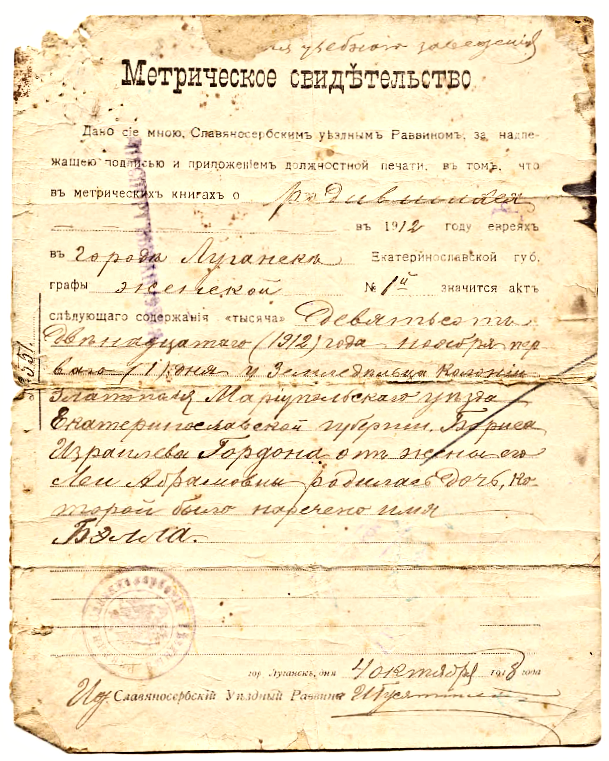 для учебного заведенія
Метрическое свидѣтельство
Дано сіе мною, Славяносербскимъ уѣзднымъ Раввиномъ, за надле-
жащею подписью и приложеніемъ должностной печати, въ томъ, что
въ метрическихъ книгахъ о родившихся
въ 1912 году евреяхъ
въ города Луганска Екатеринославской губ.
графы женской № 1й значится актъ
слѣдующаго содержанія «тысяча» Девятьсотъ
Двѣнадцатаго (1912) года ноября пер
ваго (1) дня у Земледѣльца Колоніи
Златополя Маріупольскаго уѣзда
Екатеринославской губерніи Бориса
Израилева Гордона отъ жены его
Леи Абрамовны родилась дочь, ко-
торой было наречено имя
Бэлла.
гор. Луганскъ, дня 4 октября 1918 года
Славяносербскій Уѣздный Раввинъ